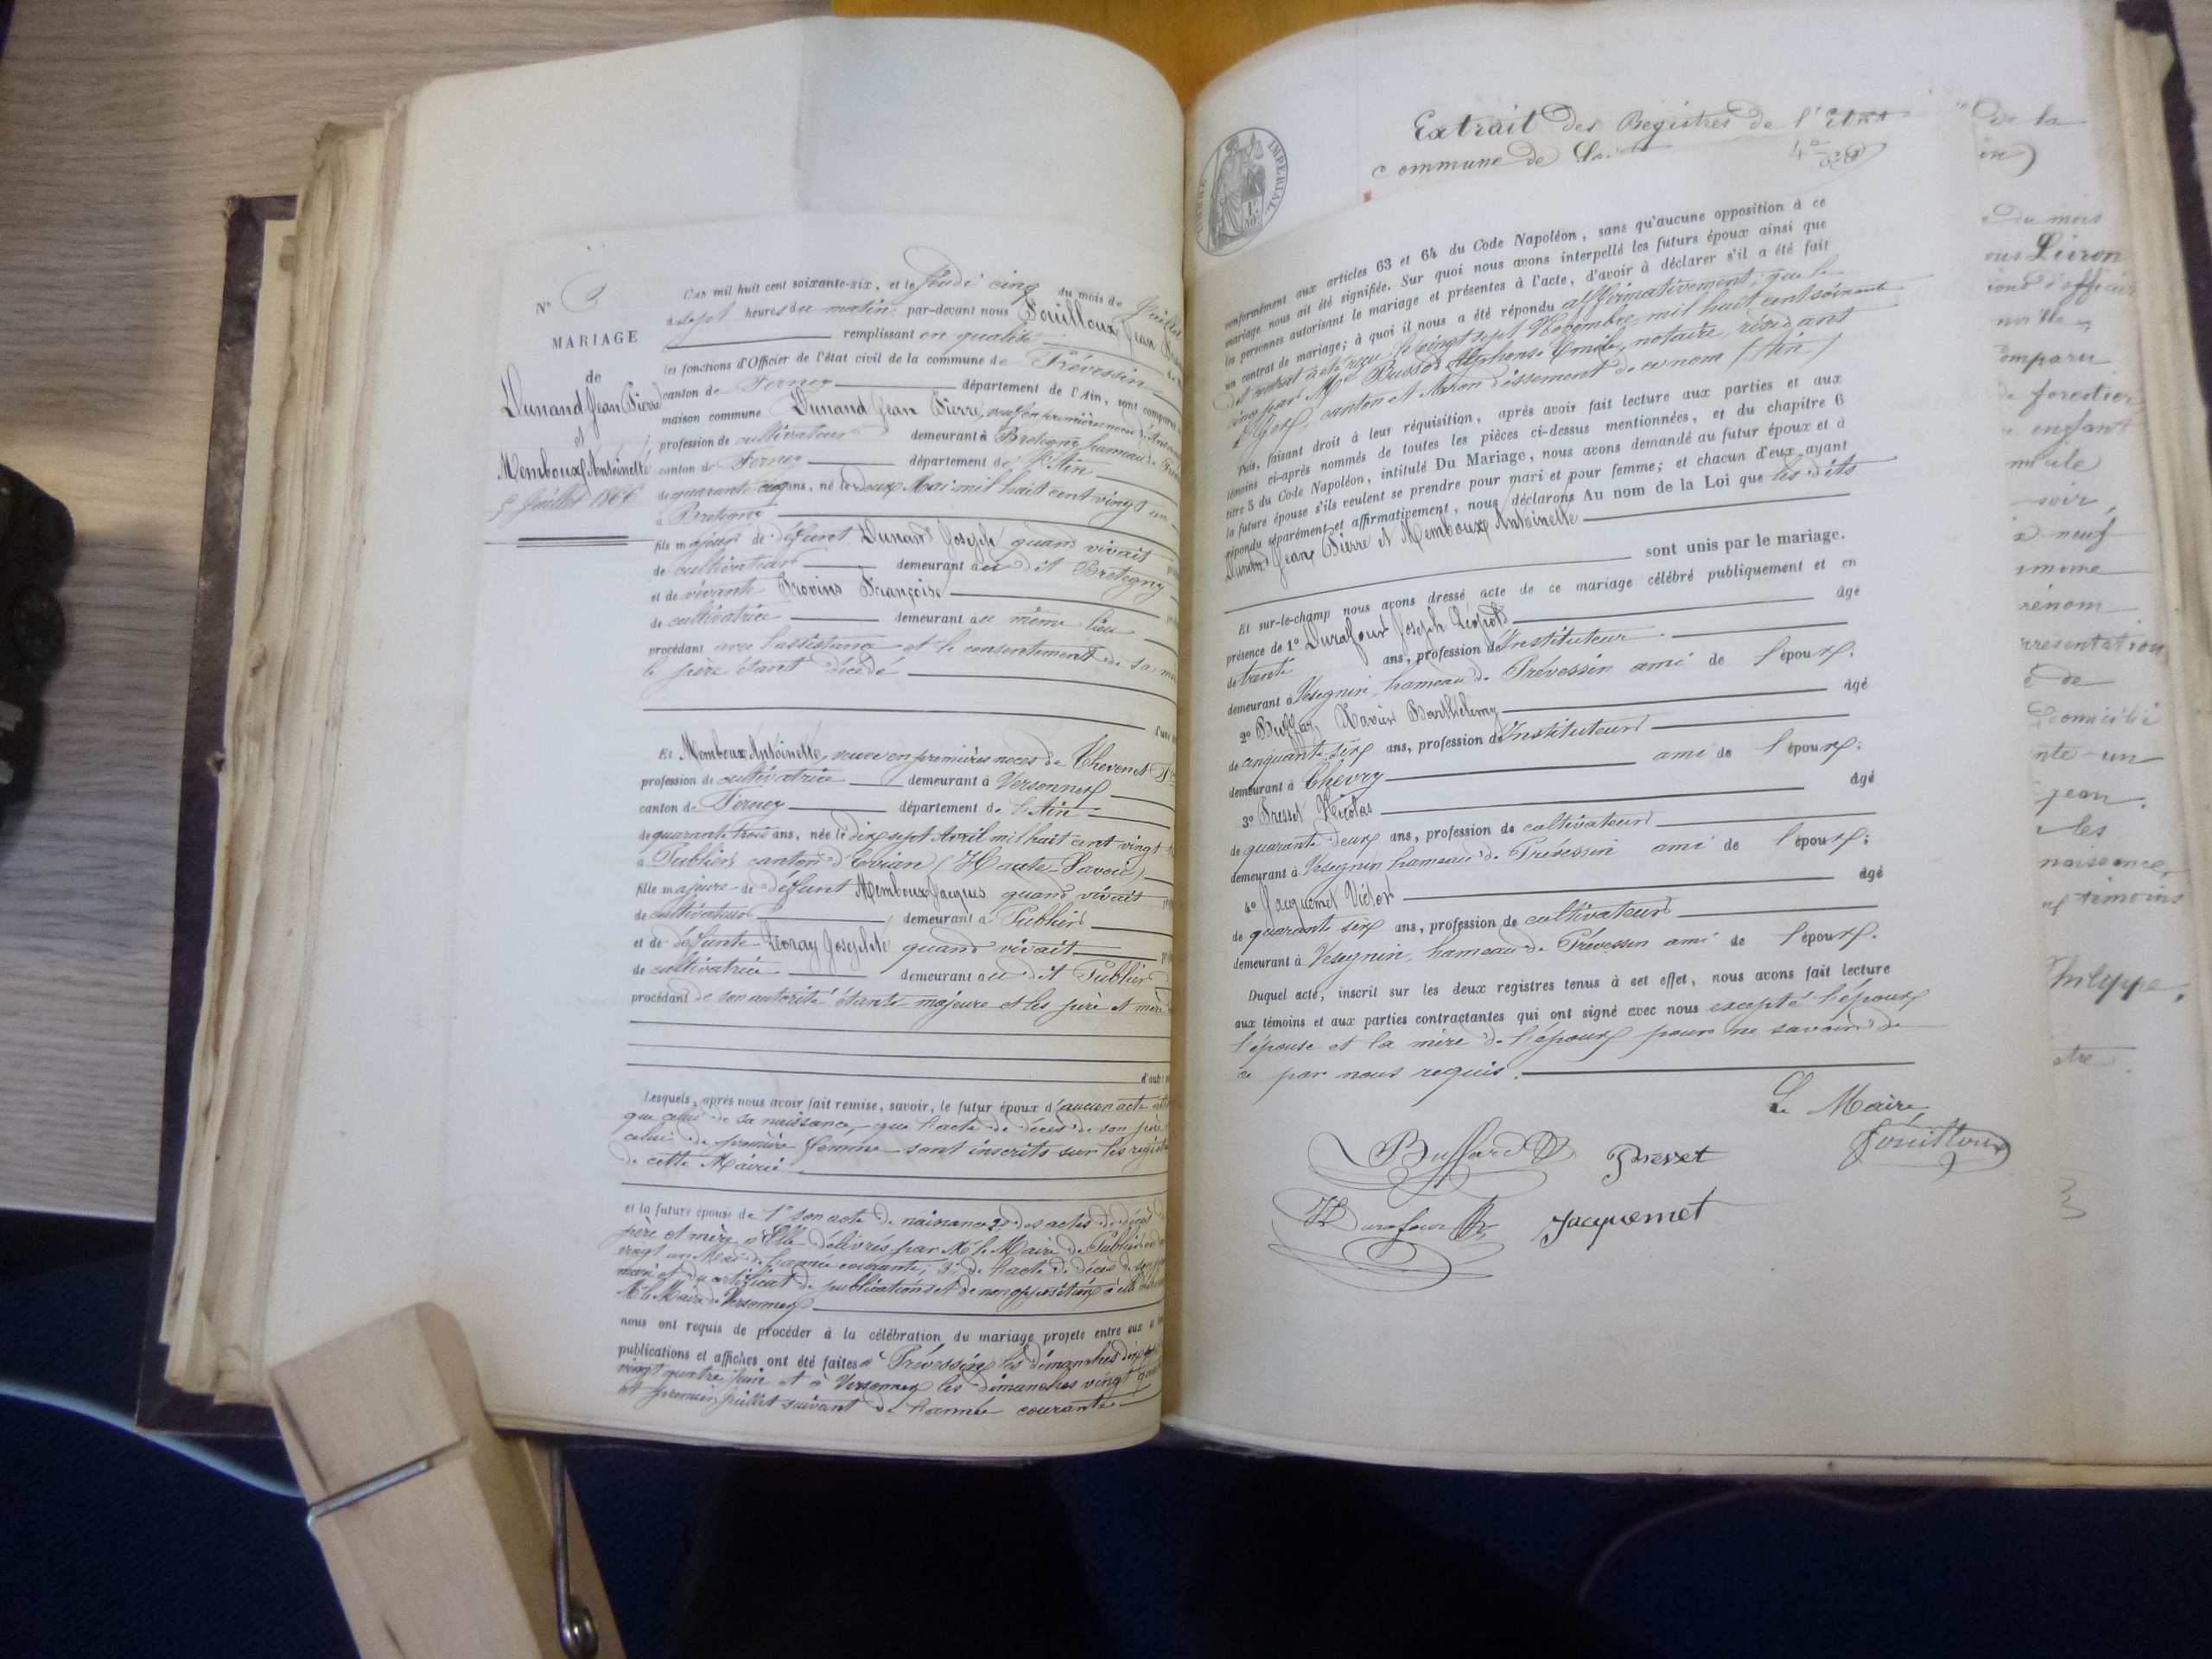 N° 3
MARIAGE
de
Dunand Jean Pierre
et
Memboux Antoinette
5 Juillet 1866
L'an mil huit cent soixante-six, et le Jeudi cinq du mois de Juillet
à sept heures du matin par-devant nous Fouilloux Jean
remplissant en qualité
les fonctions d'Officier de l'état civil de la commune de Prévessin
canton de Ferney département de l'Ain, sont comparus
maison commune Dunand Jean Pierre, veuf en premières noces
profession de cultivateur demeurant à Bretigny hameau de
canton de Ferney département de l'Ain
de quarante cinq ans, né le deux Mai mil huit cent vingt un
à Bretigny
fils majeur de défunt Dunand Joseph quand vivait
de cultivateur demeurant au dit Bretegny
et de vivante Provins Françoise
de cultivatrice demeurant au même lieu
procédant avec l'assistance et le consentement de sa
le père étant décédé
Et Memboux Antoinette, veuve en premières noces de Thevenet
profession de cultivatrice demeurant à Versonnex
canton de Ferney département de l'Ain
de quarante trois ans, née le dix sept Avril mil huit cent vingt
à Publier canton d'Evian (Haute-Savoie)
fille majeure de défunt Memboux Jacques quand vivait
de cultivateur demeurant à Publier
et de défunte Josephte quand vivait
de cultivatrice demeurant au dit Publier
procédant de son autorité étant majeure et les père et mère
Lesquels, après nous avoir fait remise, savoir, le futur époux d'aucun acte
que celui de sa naissance, que l'acte de décès de son père
celui de première femme sont inscrits sur les
de cette Mairie
et la future épouse de 1° son acte de naissance 2° des actes de décès
père et mère délivrés par Mr le Maire de Publier
vingt un Mai de l'année courante; 3° de l'acte de décès de son
mari et du certificat de publications et de non opposition à elle
Mr le Maire de Versonnex
nous ont requis de procéder à la célébration du mariage projeté entre eux
publications et affiches ont été faites à Prévessin les dimanches
vingt quatre Juin et à Versonnex les dimanches vingt
et premier Juillet suivant de l'année courante
TIMBRE IMPÉRIAL
Extrait des Registres de l'Etat
commune de
conformément aux articles 63 et 64 du Code Napoléon, sans qu'aucune opposition à ce
mariage nous ait été signifiée. Sur quoi nous avons interpellé les futurs époux ainsi que
les personnes autorisant le mariage et présentes à l'acte, d'avoir à déclarer s'il a été fait
un contrat de mariage; à quoi il nous a été répondu affirmativement; que le
dit contrat a été reçu le vingt sept Novembre mil huit cent soixante
cinq par Me Bussod Alphonse Emile, notaire, résidant
à Gex, canton et Arrondissement de ce nom (Ain)
Puis, faisant droit à leur réquisition, après avoir fait lecture aux parties et aux
témoins ci-après nommés de toutes les pièces ci-dessus mentionnées, et du chapitre 6
titre 5 du Code Napoléon, intitulé Du Mariage, nous avons demandé au futur époux et à
la future épouse s'ils veulent se prendre pour mari et pour femme; et chacun d'eux ayant
répondu séparément et affirmativement, nous déclarons Au nom de la Loi que les dits
Dunand Jean Pierre et Memboux Antoinette
sont unis par le mariage.
Et sur-le-champ nous avons dressé acte de ce mariage célébré publiquement et en
présence de 1° Durafour Joseph Léopold âgé
de trente ans, profession d'Instituteur
demeurant à Vesegnin, hameau de Prévessin ami de l'époux.
2° Buffard Xavier Barthélemy âgé
de cinquante six ans, profession d'Instituteur
demeurant à Chevry ami de l'époux;
3° Presset Nicolas âgé
de quarante deux ans, profession de cultivateur
demeurant à Vesegnin hameau de Prévessin ami de l'époux;
4° Jacquemet Victor âgé
de quarante six ans, profession de cultivateur
demeurant à Vesegnin, hameau de Prévessin ami de l'époux.
Duquel acte, inscrit sur les deux registres tenus à cet effet, nous avons fait lecture
aux témoins et aux parties contractantes qui ont signé avec nous excepté l'époux
l'épouse et la mère de l'époux pour ne savoir de
ce par nous requis.
Le Maire,
Fouilloux
Buffard Presset
Durafour Jacquemet
de la
in)
du mois
Livron
d'officier
comparu
de forestier
enfant
mâle
soir,
neuf
prénom
présentation
de
domicilié
un
jean,
les
naissance,
témoins